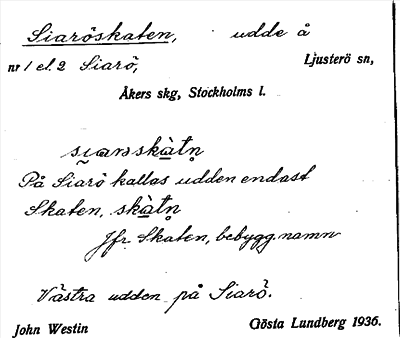 Siaröskaten, udde å
nr 1 el. 2 Siarö, Ljusterö sn,
Åkers skg, Stockholms l.
På Siarö kallas udden endast
Skaten, skàtn̥
Jfr Skaten, bebygg.namn
Västra udden på Siarö.
John Westin Gösta Lundberg 1936.